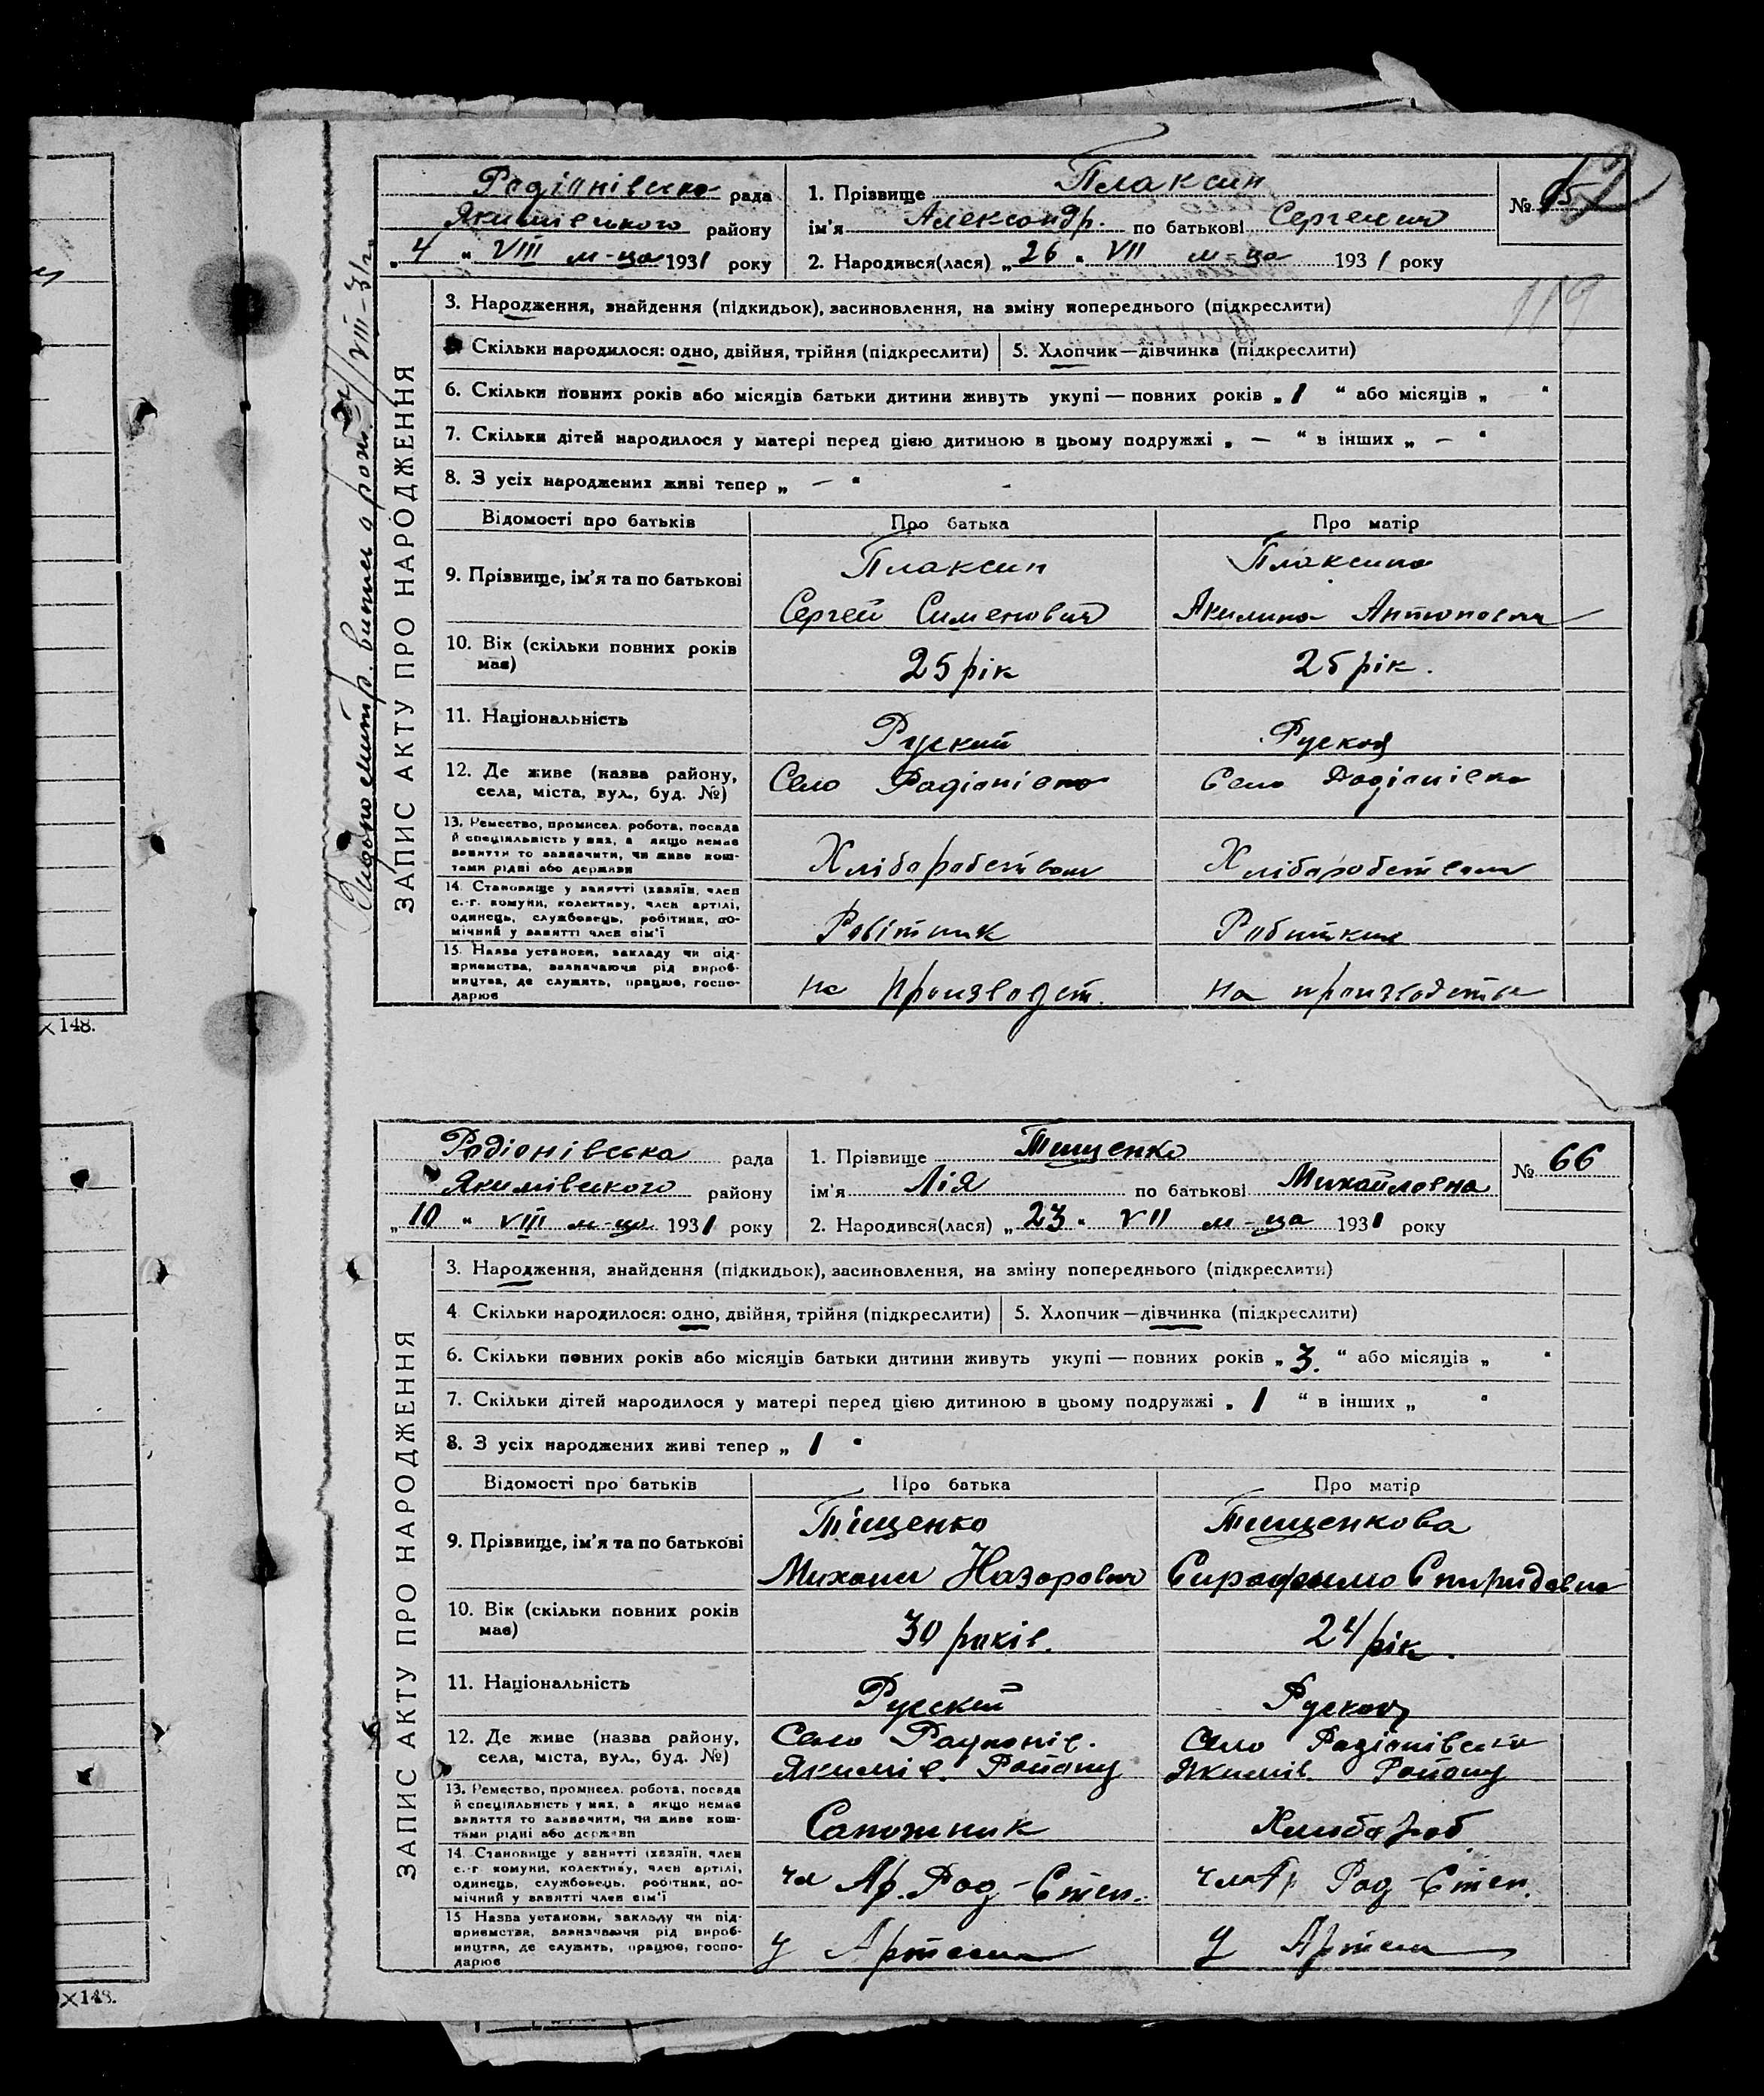 Радіонівська рада
Якимівського району
„4“ VIII м-ца 1931 року
1. Прізвище Плаксин
ім'я Александр. по батькові Сергеевич
2. Народився(лася) „26“ VII м-ца 1931 року
№
119
ЗАПИС АКТУ ПРО НАРОДЖЕННЯ
3. Народження, знайдення (підкидьок), засиновлення, на зміну попереднього (підкреслити)
Скільки народилося: одно, двійня, трійня (підкреслити)
5. Хлопчик—дівчинка (підкреслити)
6. Скільки повних років або місяців батьки дитини живуть укупі — повних років „1“ або місяців „—“
7. Скільки дітей народилося у матері перед цією дитиною в цьому подружжі „—“ в інших „—“
8. З усіх народжених живі тепер „—“
Відомості про батьків
Про батька
Про матір
9. Прізвище, ім'я та по батькові
Плаксин
Сергей Сименович
Плаксина
Акилина Антоновна
10. Вік (скільки повних років має)
25 рік
25 рік.
11. Національність
Руский
Руская
12. Де живе (назва району, села, міста, вул., буд. №)
Село Радіонівка
Село Радіонівка
13. Ремество, промисел, робота, посада
й спеціяльність у них, а якщо немає
заняття то зазначити, чи живе кош-
тами рідні або держави
Хлібаробством
Хлібаробством
14. Становище у занятті (хазяїн, член
с.-г. комуни, колективу, член артілі,
одинець, службовець, робітник, по-
мічний у занятті член сім'ї
Робітник
Робиткиця
15. Назва установи, закладу чи під-
приємства, зазначаючи рід вироб-
ництва, де служить, працює, госпо-
дарює
на производст.
на производстве
×148.
Радіонівська рада
Якимівського району
„10“ VIII м-ца 1931 року
1. Прізвище Тищенко
ім'я Лія по батькові Михайловна
2. Народився(лася) „23“ VII м-ца 1931 року
№ 66
ЗАПИС АКТУ ПРО НАРОДЖЕННЯ
3. Народження, знайдення (підкидьок), засиновлення, на зміну попереднього (підкреслити)
4 Скільки народилося: одно, двійня, трійня (підкреслити)
5. Хлопчик—дівчинка (підкреслити)
6. Скільки повних років або місяців батьки дитини живуть укупі — повних років „3.“ або місяців „ “
7. Скільки дітей народилося у матері перед цією дитиною в цьому подружжі „1“ в інших „ “
8. З усіх народжених живі тепер „1“
Відомості про батьків
Про батька
Про матір
9. Прізвище, ім'я та по батькові
Тищенко
Михаил Назарович
Тищенкова
Сирафима Спиридовна
10. Вік (скільки повних років має)
30 років.
24 рік.
11. Національність
Русский
Руская
12. Де живе (назва району, села, міста, вул., буд. №)
Село Радионів.
Якимів. Району
Село Радіонівська
Якимів. Району
13. Ремество, промисел, робота, посада
й спеціяльність у них, а якщо немає
заняття то зазначити, чи живе кош-
тами рідні або держави
Сапожник
Хлибороб
14. Становище у занятті (хазяїн, член
с.-г. комуни, колективу, член артілі,
одинець, службовець, робітник, по-
мічний у занятті член сім'ї
чл Ар. Рад-Степ.
чл Ар Рад-Степ.
15 Назва установи, закладу чи під-
приємства, зазначаючи рід вироб-
ництва, де служить, працює, госпо-
дарює
У Артели
У Артели
×148.